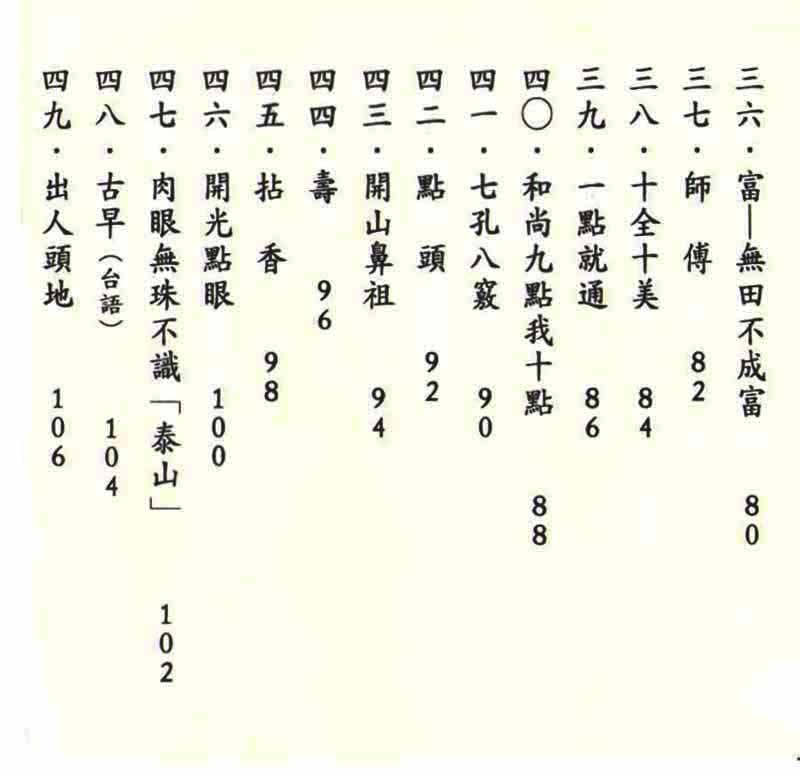 三六・富—無田不成富 80
三七・師傅 82
三八・十全十美 84
三九・一點就通 86
四〇・和尚九點我十點 88
四一・七孔八竅 90
四二・點頭 92
四三・開山鼻祖 94
四四・壽 96
四五・拈香 98
四六・開光點眼 100
四七・肉眼無珠不識「泰山」 102
四八・古早(台語) 104
四九・出人頭地 106